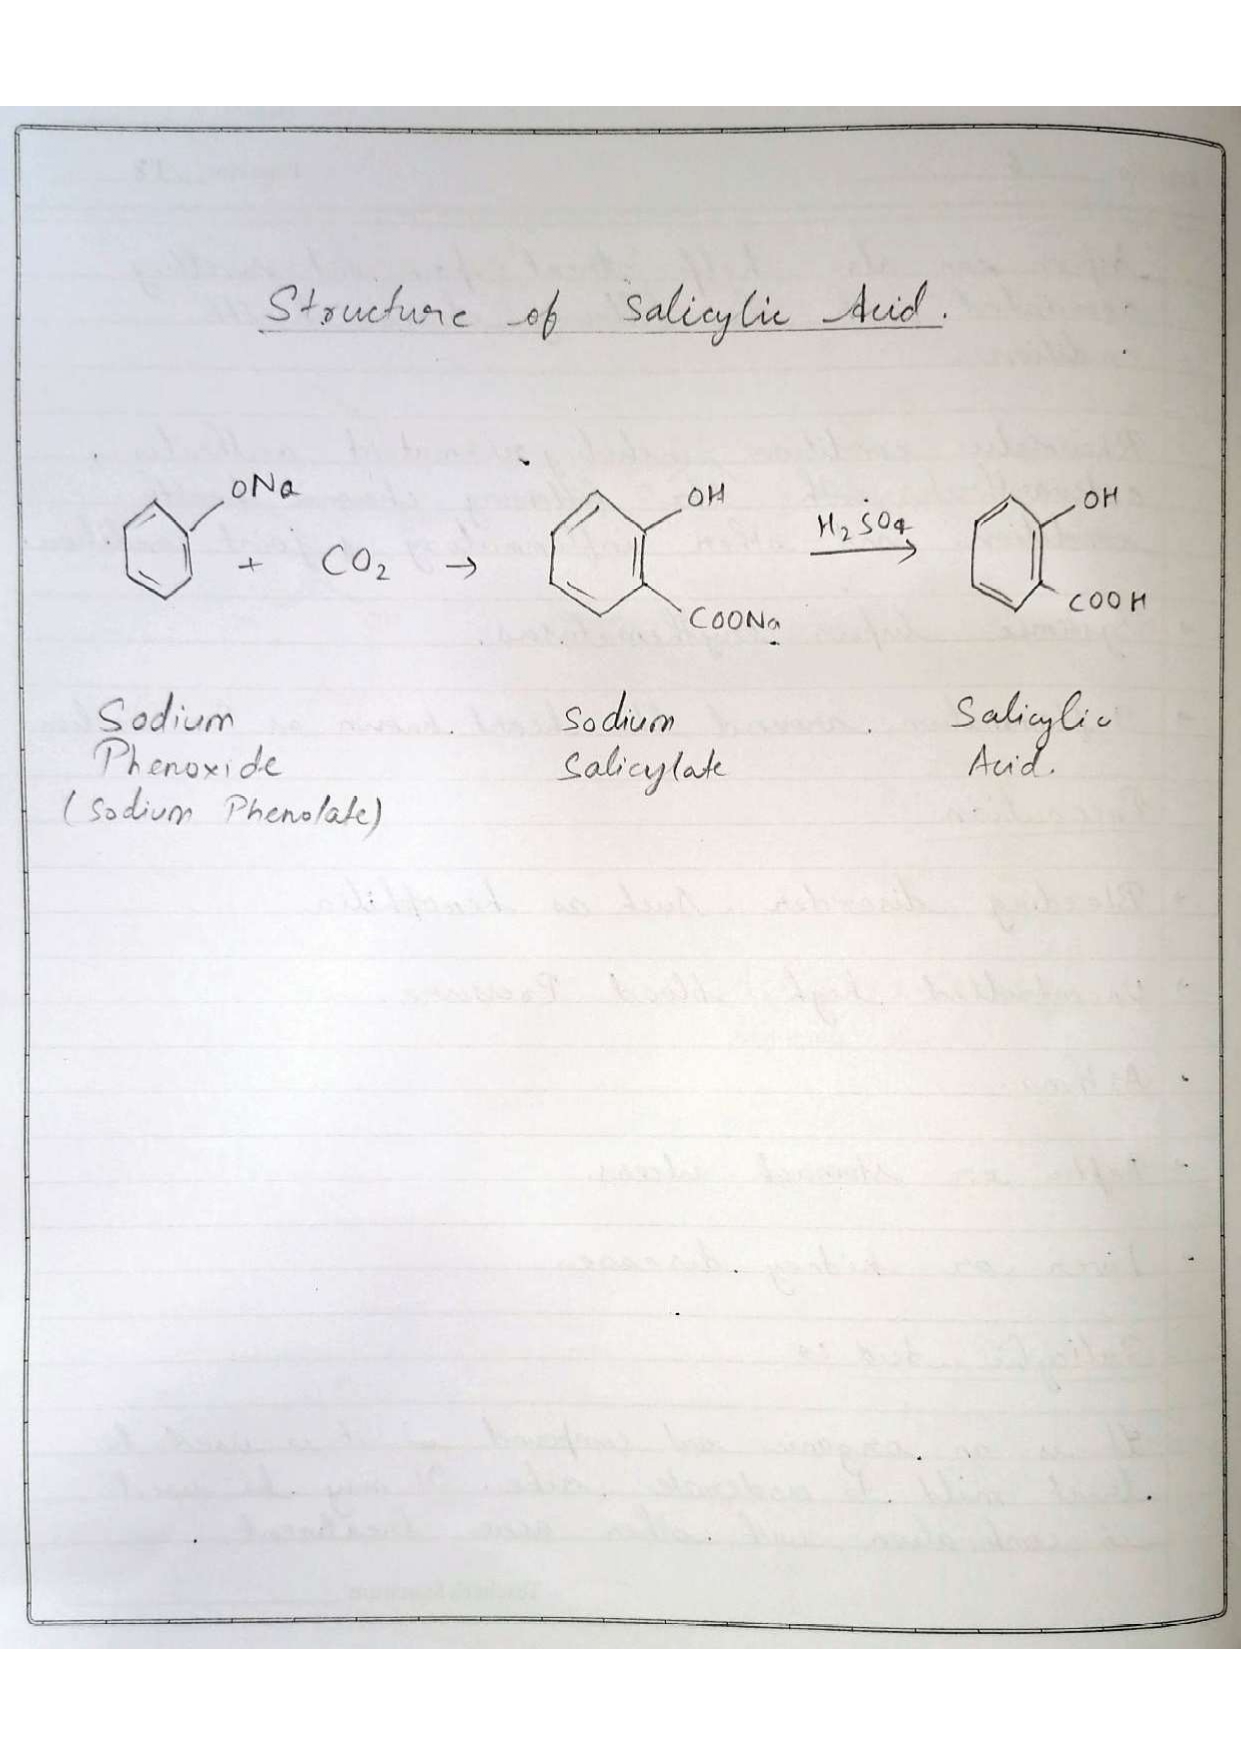 Structure of Salicylic Acid.
ONa + CO2 → OH COONa H2SO4 → OH COOH
Sodium Phenoxide (Sodium Phenolate)
Sodium Salicylate
Salicylic Acid.